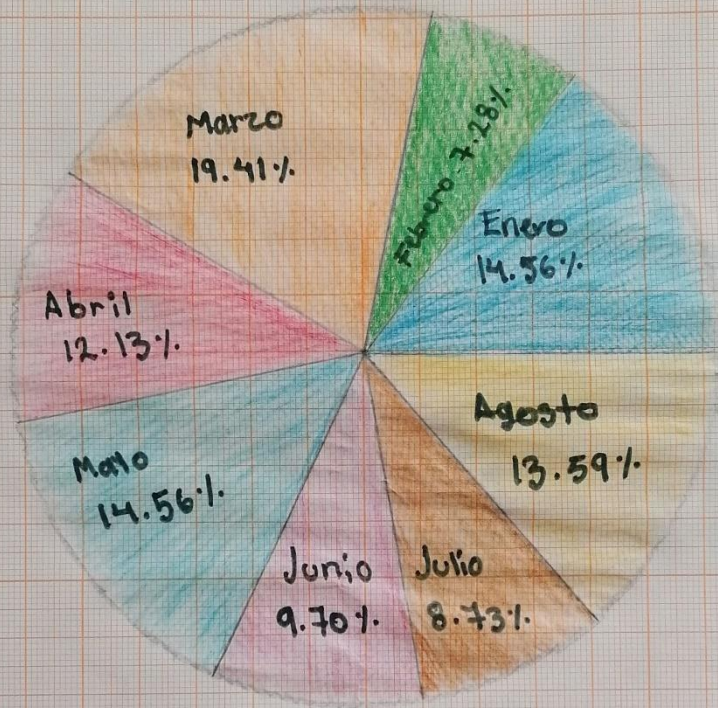 Marzo
19.41%
Febrero 7.28%
Enero
14.56%
Abril
12.13%
Agosto
13.59%
Mayo
14.56%
Junio
9.70%
Julio
8.73%